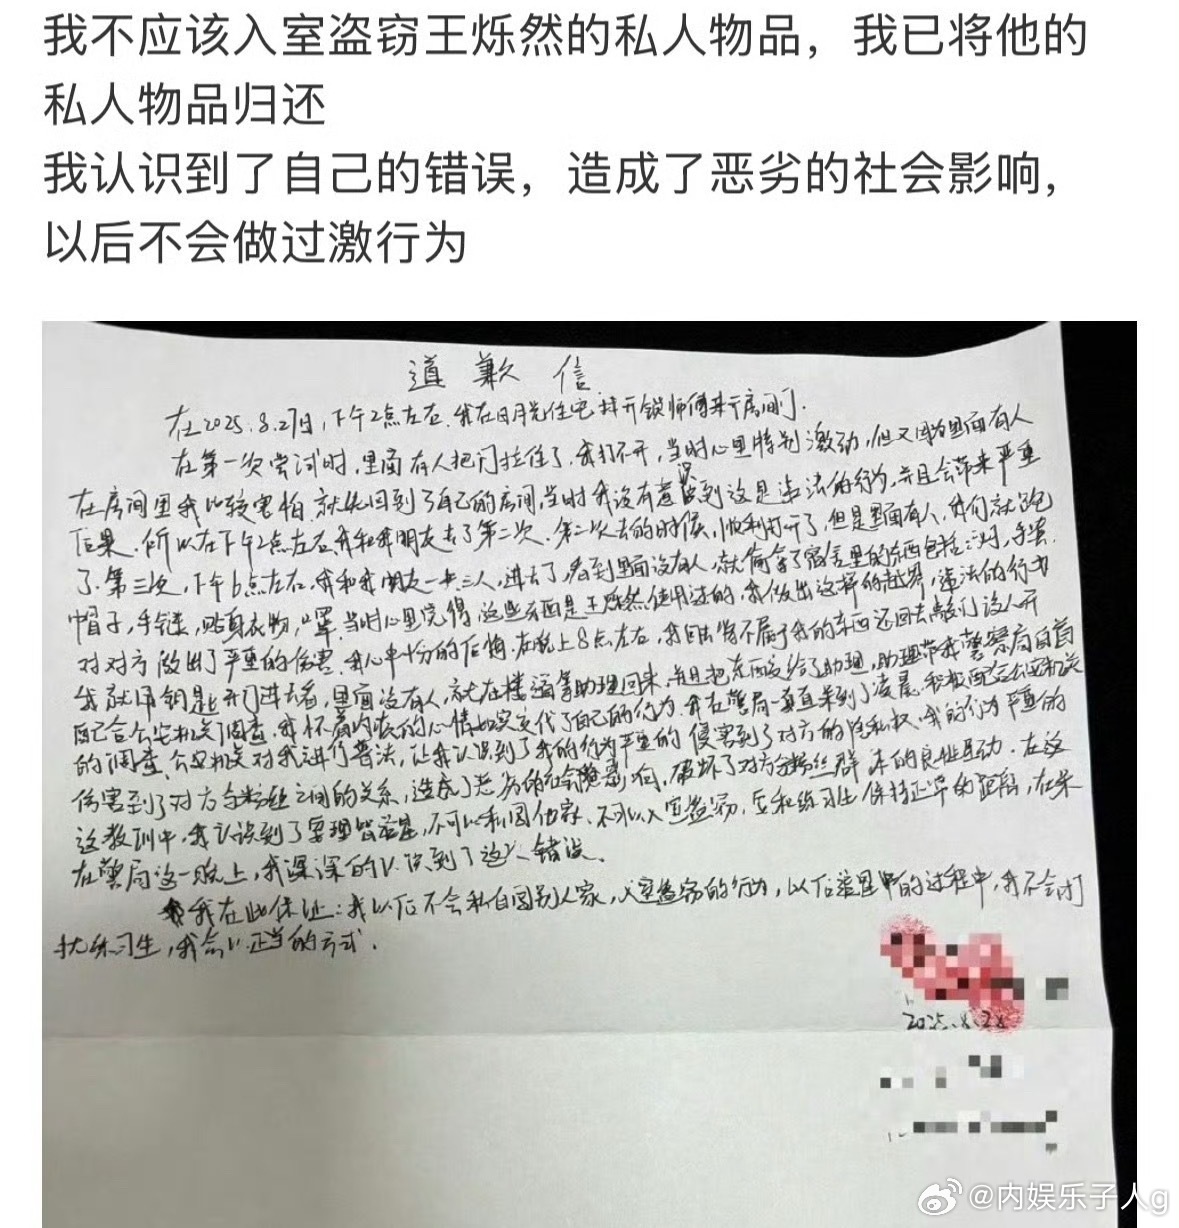 我不应该入室盗窃王烁然的私人物品，我已将他的
私人物品归还
我认识到了自己的错误，造成了恶劣的社会影响，
以后不会做过激行为
道歉信
在2025.8.27日，下午2点左右，我在日月光住宅找开锁师傅来开房间门.
在第一次尝试时，里面有人把门拉住了，我打不开，当时心里特别激动，但又因为里面有人
在房间里我比较害怕，就先回到了自己的房间，当时我没有意识到这是违法的行为，并且会带来严重
后果，所以在下午2点左右我和我朋友去了第二次.第二次去的时候，顺利打开了，但是里面有人，我们就跑
了.第三次，下午6点左右，我和我朋友一共三人，进去了，看到里面没有人，就偷拿了宿舍里的东西包括
帽子，手链，贴身衣物，口罩，当时心里觉得，这些东西是王烁然使用过的，我做出这样的越界，违法的行为
对对方做出了严重的伤害，我心中十分的后悔.在晚上8点左右，我回去将不属于我的东西还回去敲门没人开
我就用钥匙开门进去看，里面没有人，就在楼道等助理回来，并且把东西交给了助理，助理带我警察局自首
配合公安机关调查，我怀着内疚的心情如实交代了自己的行为.我在警局一直呆到了凌晨.积极配合公安机关
的调查，公安机关对我进行普法，让我认识到了我的行为严重的侵害到了对方的隐私权，我的行为严重的
伤害到了对方与粉丝之间的关系，造成了恶劣的社会影响，破坏了对方与粉丝群 的良性互动.在这
这教训中，我认识到了要理智追星，不可以私闯他家，不可以入室盗窃，应和练习生保持正常的距离，在呆
在警局这一晚上，我深深的认识到了这个错误.
我在此保证：我以后不会私自闯别人家，入室盗窃的行为，以后追星中的过程中，我不会打
扰练习生，我会以正当的方式.
2025.8.28
@内娱乐子人g